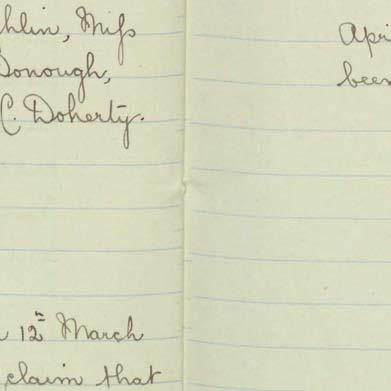 hlin, Miss
Donough,
C. Doherty.
12th March
claim that
Apri
been